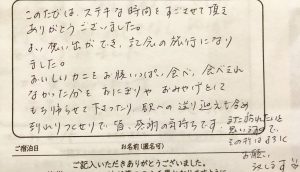 このたびは、ステキな時間をすごさせて頂き
ありがとうございました。
よい思い出ができ、記念の旅行になり
ました。
おいしいカニをお腹いっぱい食べ、食べきれ
なかった分をおにぎりや おみやげとして
もち帰らせて下さったり、駅への送り迎えも含め
皆、感謝の気持ちです。
また訪れたいと
思います
その時はよろしく
お願い
致します
ご宿泊日
お名前(匿名可)
ご記入いただきありがとうございました。